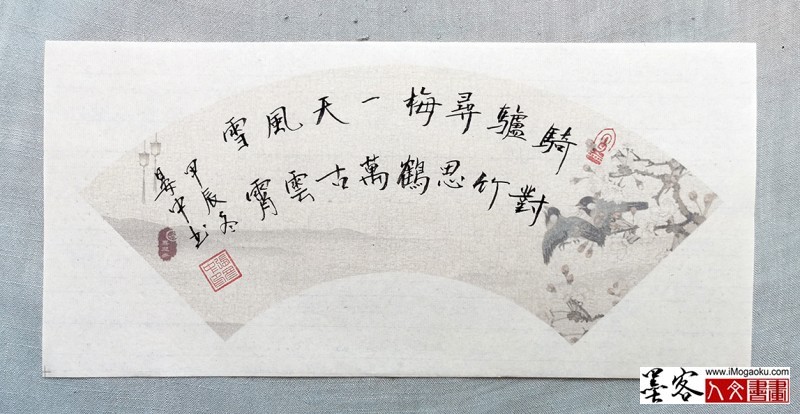 騎驢尋梅一天風雪
對竹思鶴萬古雲霄
甲辰冬
中书
www.iMogaoku.com
墨客人文書畫